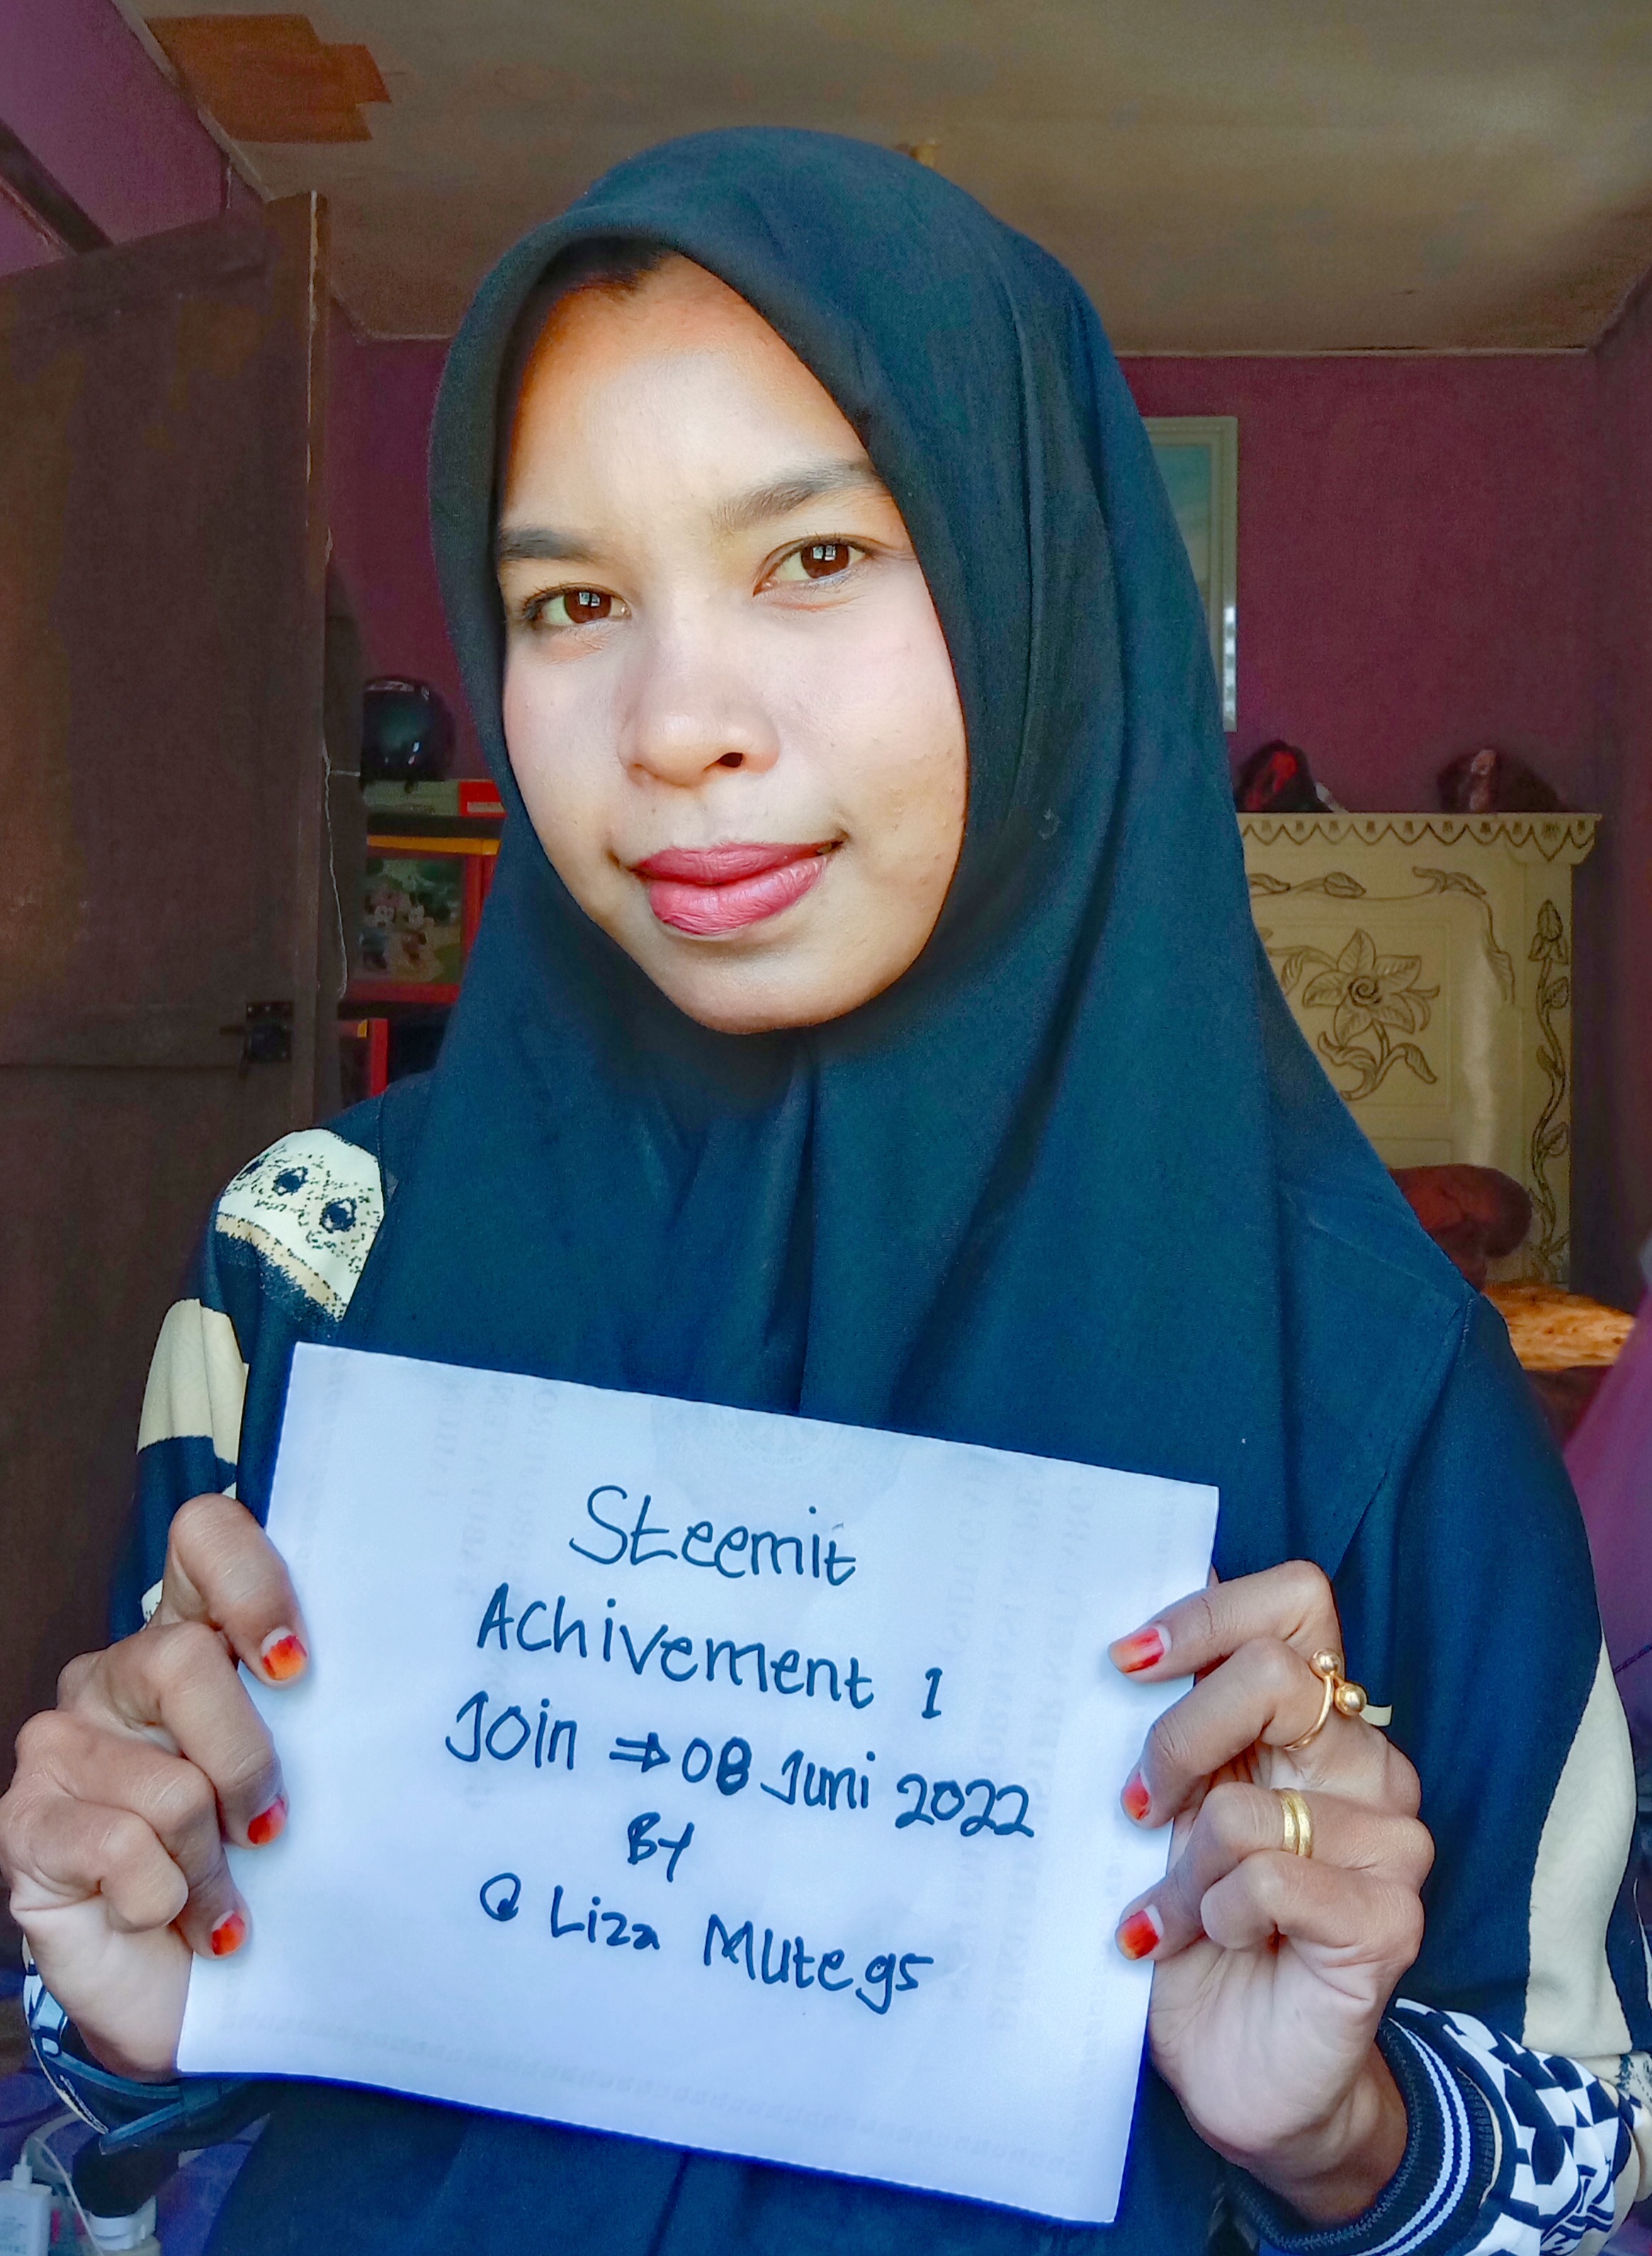 Steemit
Achivement 1
Join ⇒ 08 Juni 2022
By
@ Liza Mutegs